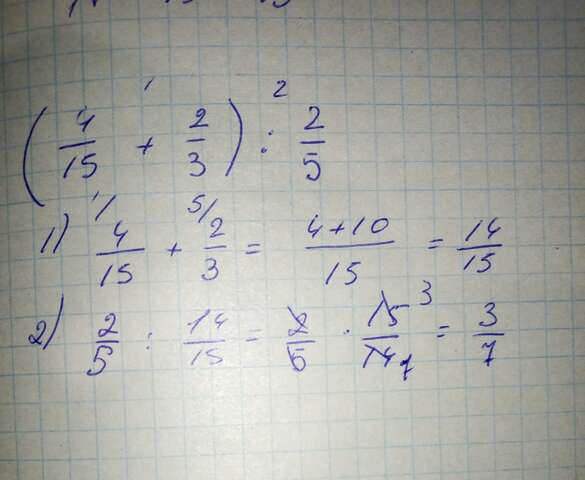 1 2
(4/15 + 2/3) : 2/5
1) 4/15 1/ + 2/3 5/ = 4+10/15 = 14/15
2) 2/5 : 14/15 = 2/5 · 15/14 3 7 = 3/7